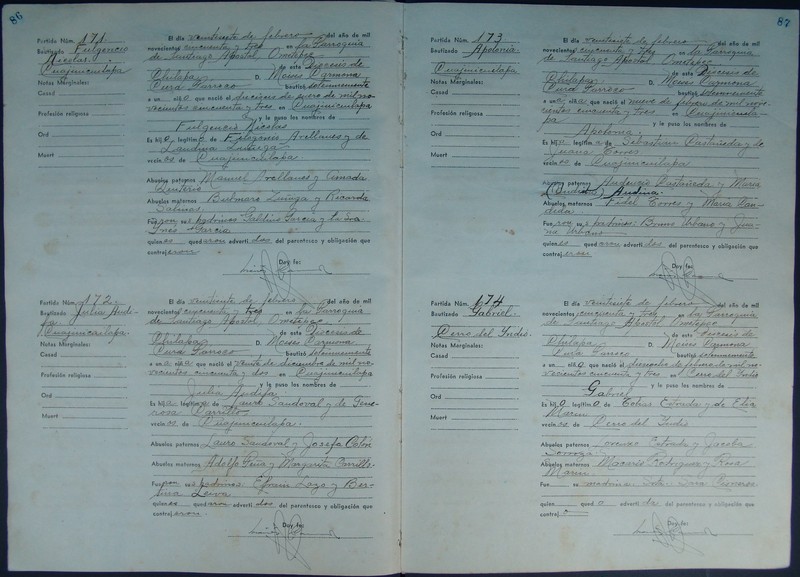 86
Partida Núm. 171
Bautizado Fulgencio
Nicolas.
Cuajinicuilapa
Notas Marginales:
Casad
Profesión religiosa
Ord
Muert
El día veintisiete de febrero del año de mil
novecientos cincuenta y tres en la Parroquia
de Santiago Apostol Ometepec
de esta Diocesis de
Chilapa D. Moises Carmona
Cura Parroco bautizó solemnemente
a un niño que nació el de enero de mil no
vecientos cincuenta y tres en Cuajinicuilapa
y le puso los nombres de
Fulgencio Nicolas
Es hijo legítimo de Arellanes y de
vecinos de Cuajinicuilapa
Abuelos paternos Manuel Arellanes y
Abuelos maternos y Ricarda
Salinas
Fueron sus padrinos García y
Inés García
quienes quedaron advertidos del parentesco y obligación que
contrajeron
Doy fe:
Partida Núm. 172
Bautizado Julia
Cuajinicuilapa.
Notas Marginales:
Casad
Profesión religiosa
Ord
Muert
El día veintisiete de febrero del año de mil
novecientos cincuenta y tres en la Parroquia
de Santiago Apostol Ometepec
de esta Diocesis de
Chilapa D. Moises Carmona
Cura Parroco bautizó solemnemente
a una niña que nació el veinte de diciembre de mil no
vecientos cincuenta y dos en Cuajinicuilapa
y le puso los nombres de
Julia
Es hija legítima de Sandoval y de
Carrillo
vecinos de Cuajinicuilapa.
Abuelos paternos Lauro Sandoval y Josefa
Abuelos maternos Adolfo Peña y Margarita Carrillo
Fueron sus padrinos Efrain y
Leiva
quienes quedaron advertidos del parentesco y obligación que
contrajeron
Doy fe:
87
Partida Núm. 173
Bautizado Apolonia
Cuajinicuilapa
Notas Marginales:
Casad
Profesión religiosa
Ord
Muert
El día veintisiete de febrero del año de mil
novecientos cincuenta y tres en la Parroquia
de Santiago Apostol Ometepec
de esta Diocesis de
Chilapa D. Moises Carmona
Cura Parroco bautizó solemnemente
a una niña que nació el nueve de febrero de mil nove
cientos cincuenta y tres en Cuajinicuila
pa y le puso los nombres de
Apolonia
Es hija legítima de Sebastian Castañeda y de
Juana Torres
vecinos de Cuajinicuilapa
Abuelos paternos Audencio Castañeda y Maria
Abuelos maternos Fidel Torres y Maria
Fueron sus padrinos: Bruno Urbano y Jua
na Urbano
quienes quedaron advertidos del parentesco y obligación que
contrajeron
Doy fe:
Partida Núm. 174
Bautizado Gabriel.
Cerro del Indio.
Notas Marginales:
Casad
Profesión religiosa
Ord
Muert
El día veintisiete de febrero del año de mil
novecientos cincuenta y tres en la Parroquia
de Santiago Apostol Ometepec
de esta Diocesis de
Chilapa D. Moises Carmona
Cura Parroco bautizó solemnemente
a un niño que nació el dieciocho de febrero de mil no
vecientos cincuenta y tres en Cerro del Indio
y le puso los nombres de
Gabriel
Es hijo legítimo de Tobias Estrada y de
Marin
vecinos de Cerro del Indio
Abuelos paternos Lorenzo Estrada y Jacoba
Abuelos maternos Macario Rodriguez y Rosa
Marin
Fue madrina Srta. Sara Cisneros
quien quedó advertida del parentesco y obligación que
contrajo
Doy fe: